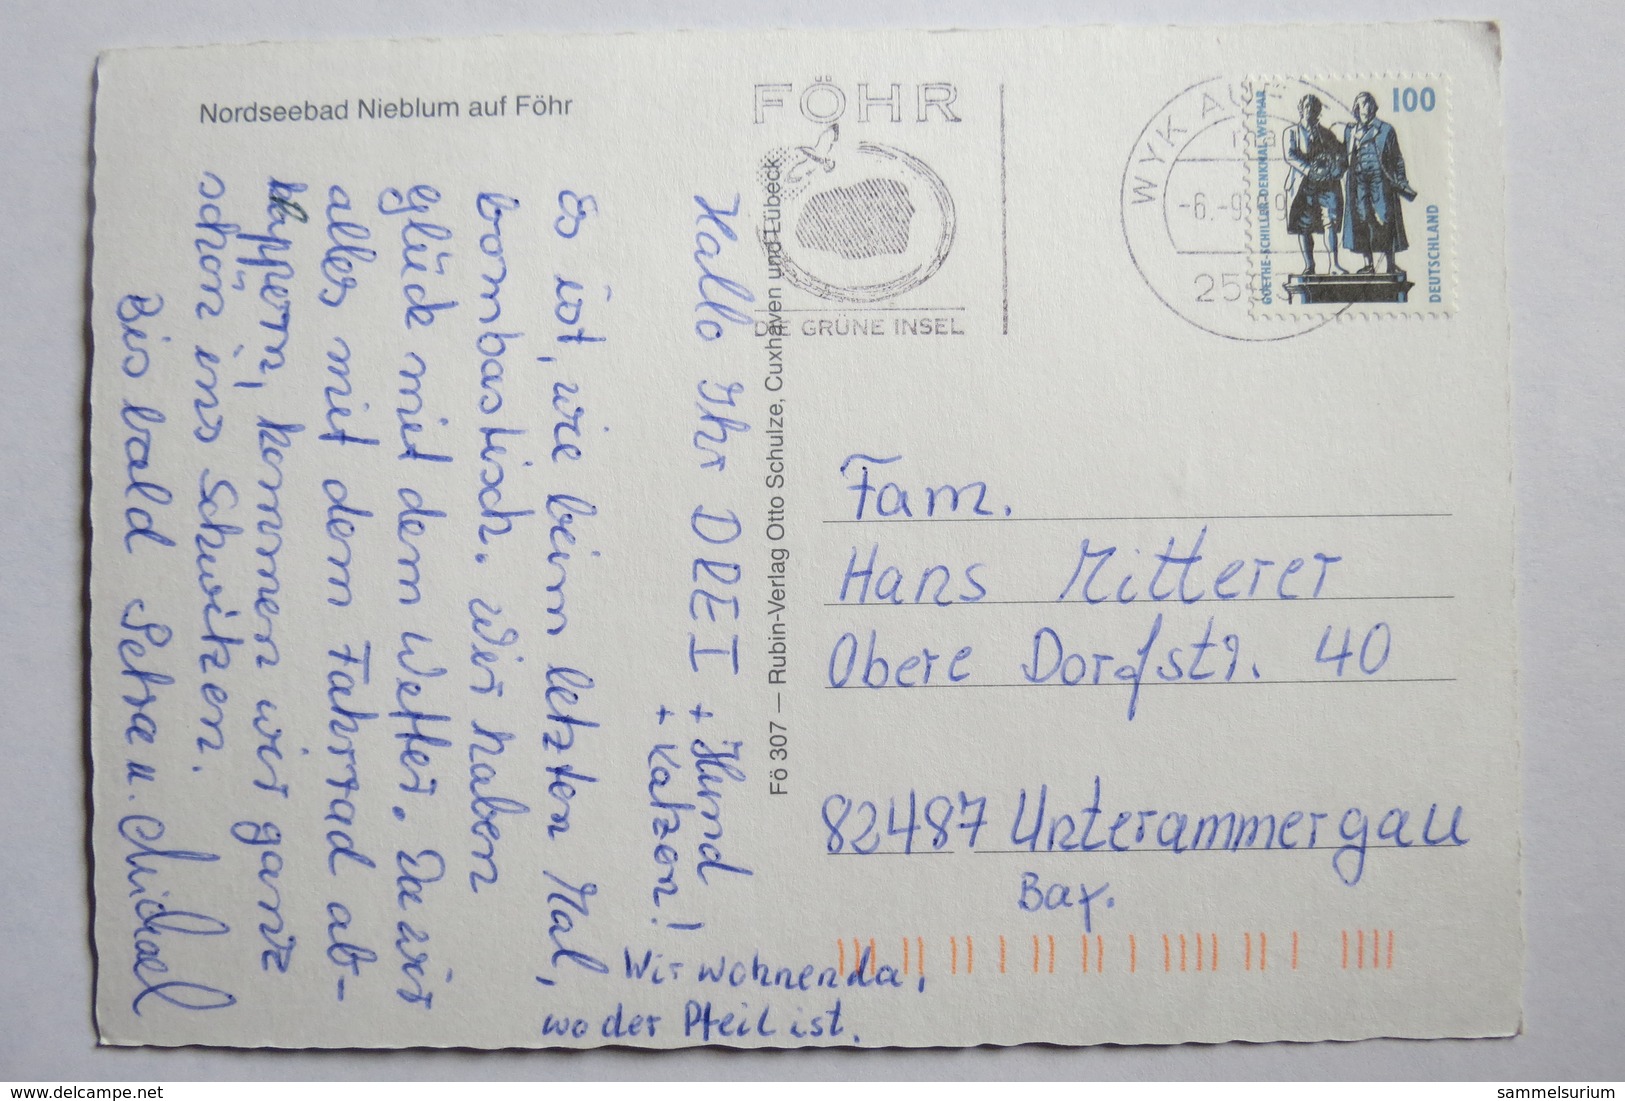 Nordseebad Nieblum auf Föhr
Hallo Ihr DREI + Hund
+ Katzen!
Es ist, wie beim letzten Mal,
bombastisch. Wir haben
Glück mit dem Wetter. Da wir
alles mit dem Fahrrad ab-
klappern, kommen wir ganz
schön ins Schwitzen.
Bis bald Petra u. Michael
Wir wohnen da,
wo der Pfeil ist.
Fö 307 — Rubin-Verlag Otto Schulze, Cuxhaven und Lübeck
FÖHR
DIE GRÜNE INSEL
WYK AUF
-6.-9.
100
GOETHE-SCHILLER-DENKMAL WEIMAR
DEUTSCHLAND
Fam.
Hans Mitterer
Obere Dorfstr. 40
82487 Unterammergau
Bay.
delcampe.net
sammelsurium